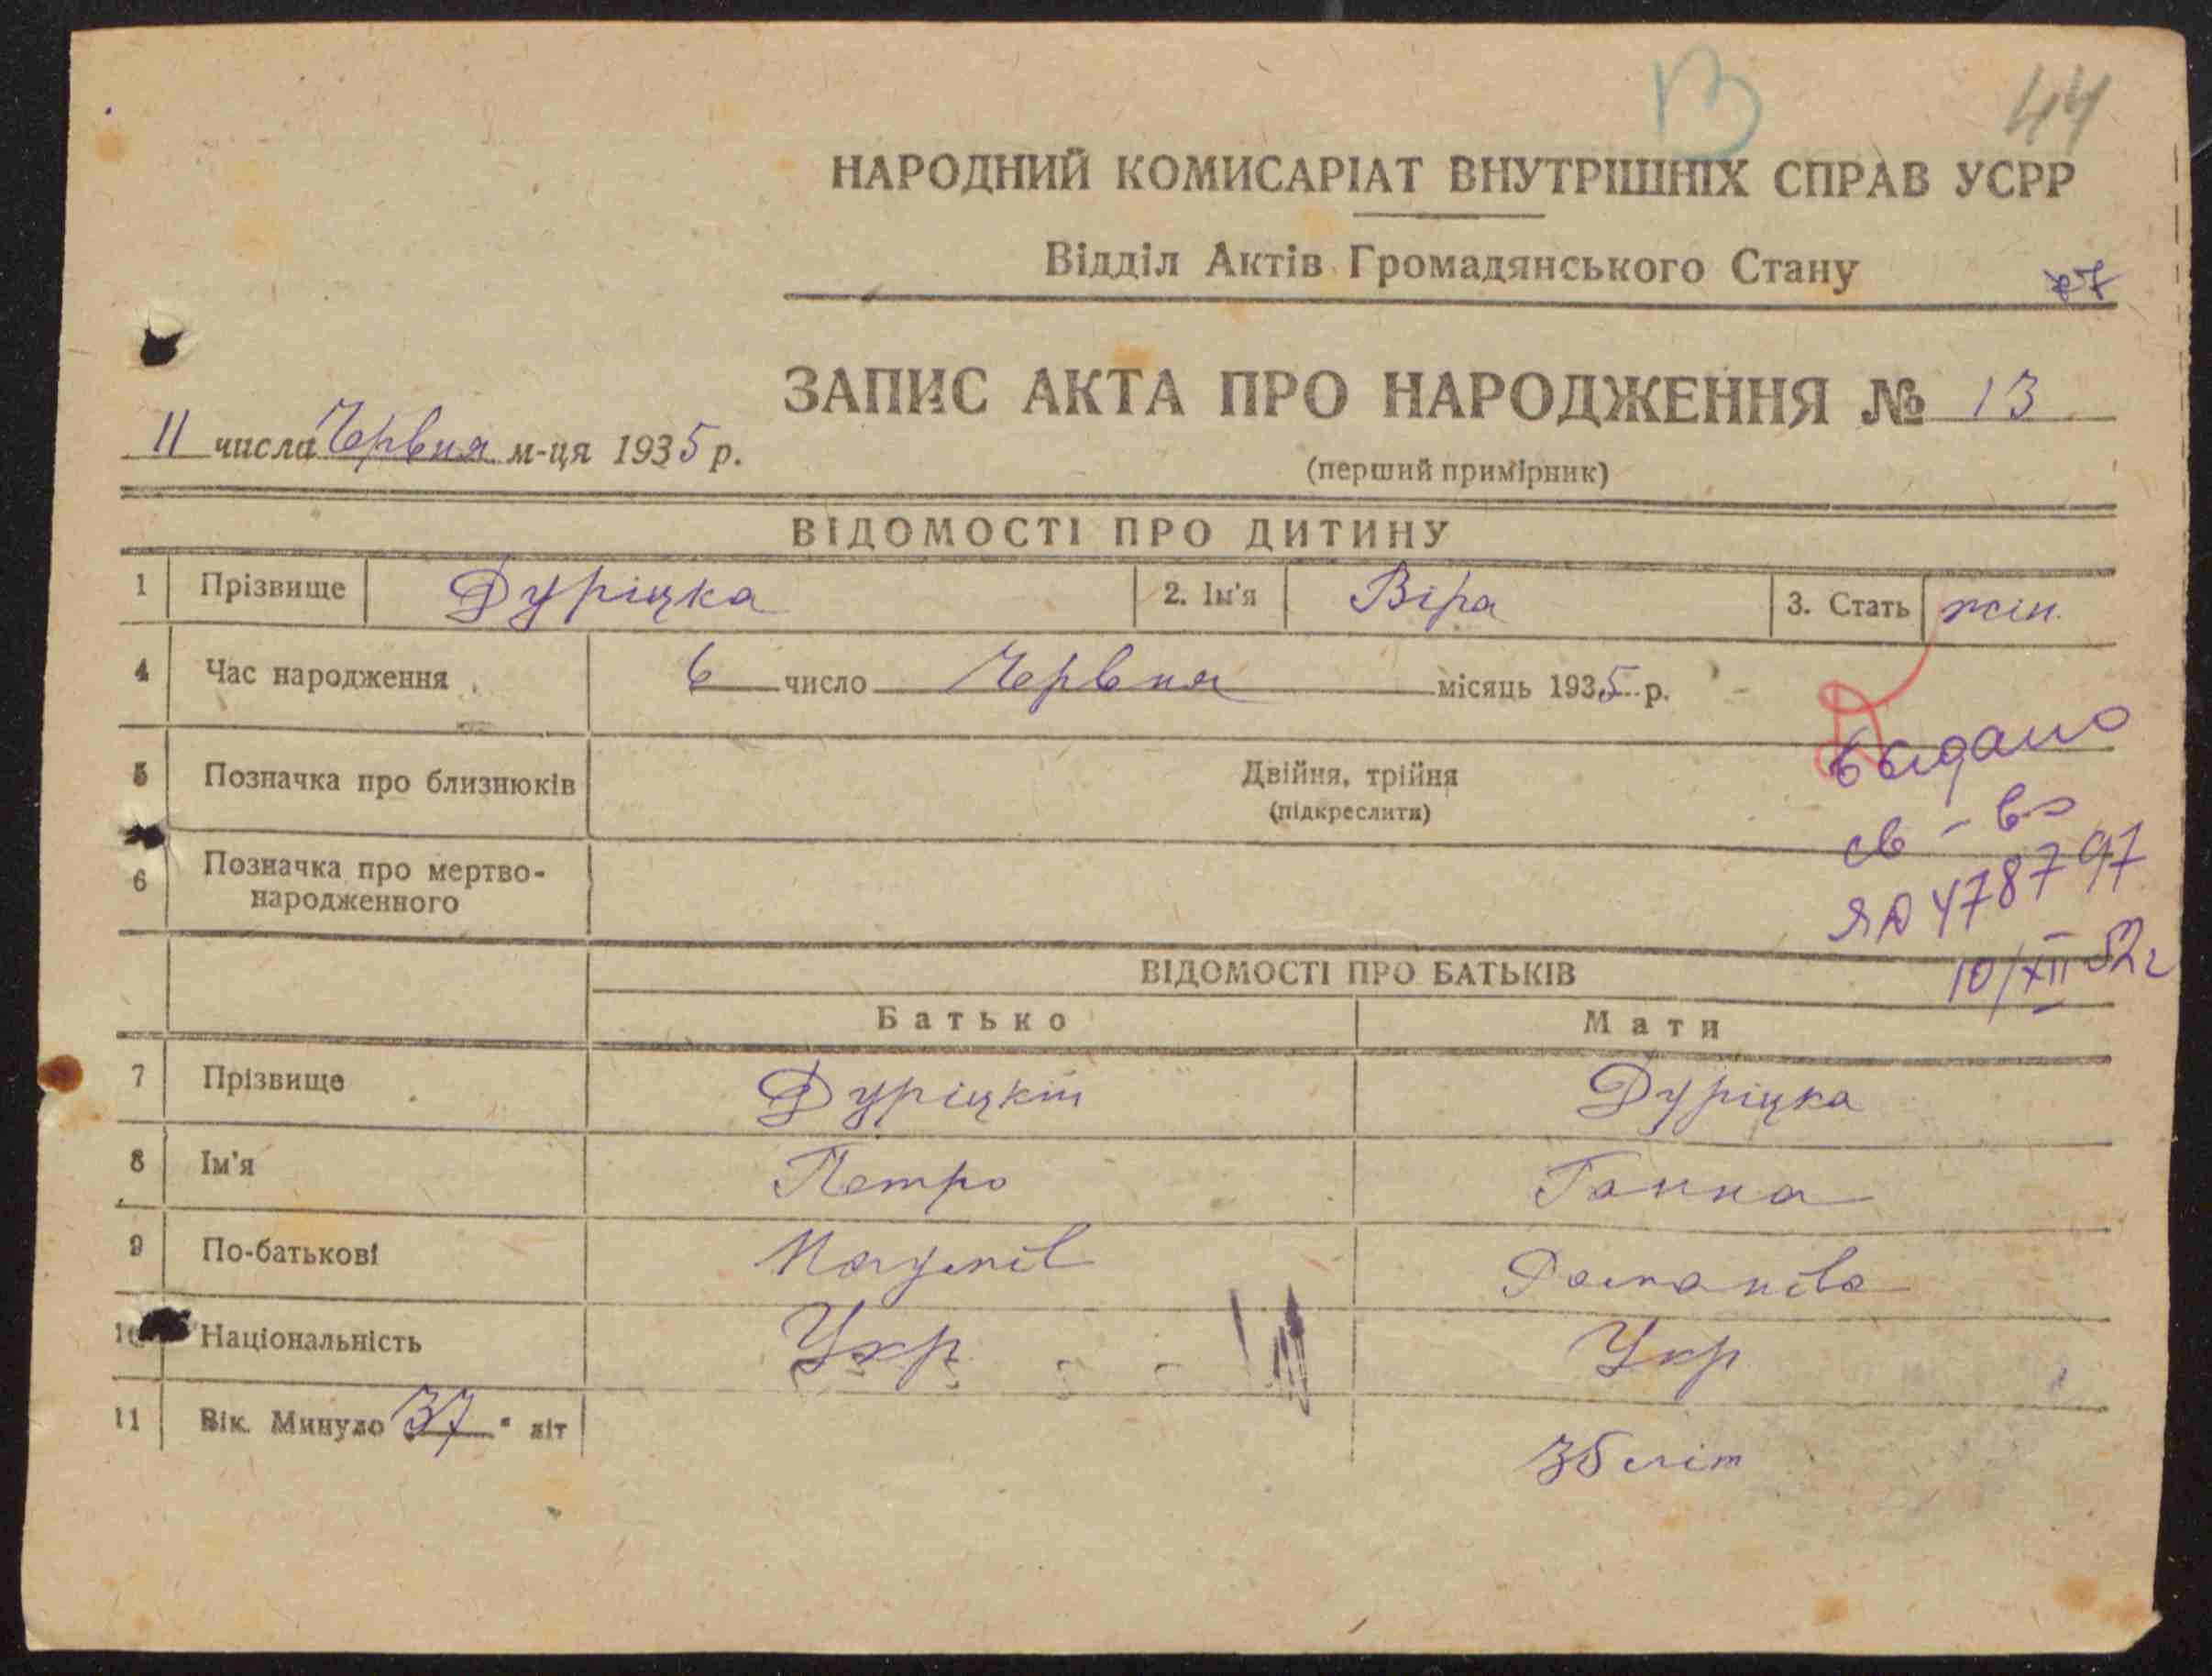 13 44
НАРОДНИЙ КОМИСАРІАТ ВНУТРІШНІХ СПРАВ УСРР
Відділ Актів Громадянського Стану
ЗАПИС АКТА ПРО НАРОДЖЕННЯ № 13
11 числа Червня м-ця 1935 р.
(перший примірник)
ВІДОМОСТІ ПРО ДИТИНУ
1 Прізвище Дуріцка 2. Ім'я Віра 3. Стать жін.
4 Час народження 6 число Червня місяць 1935 р.
5 Позначка про близнюків Двійня, трійня
(підкреслити)
выдано
св-во
ЯД 478797
10/XII 52г
6 Позначка про мертво-
народженного
ВІДОМОСТІ ПРО БАТЬКІВ
Батько Мати
7 Прізвище Дуріцкій Дуріцка
8 Ім'я Петро Ганна
9 По-батькові Романівна
10 Національність Укр Укр
11 Вік. Минуло 37 " літ
літ